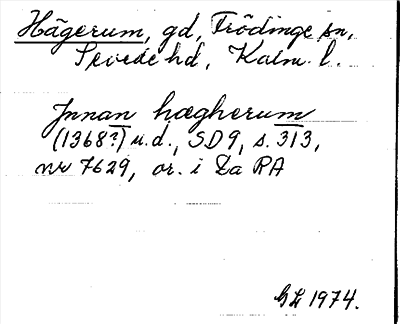 Hägerum, gd, Frödinge sn,
Sevede hd, Kalm. l.
Jnnan hægherum
(1368?) u.d., SD9, s. 313,
nr 7629, or. i Za RA
GL 1974.